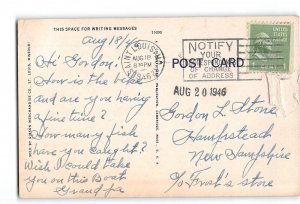 THIS SPACE FOR WRITING MESSAGES
Aug 18/46
Hi Gordon:
How is the bike
and are you having
a fine time?
How many fish
have you caught?
Wish I could take
you on this Boat
Grandpa
SAINT LOUIS
AUG 18
8 PM
1946
NOTIFY
YOUR
CORRESPONDENTS
OF CHANGE
OF ADDRESS
POST CARD
AUG 20 1946
Gordon L. Stone
Hampstead
New Hampshire
c/o Frost's store